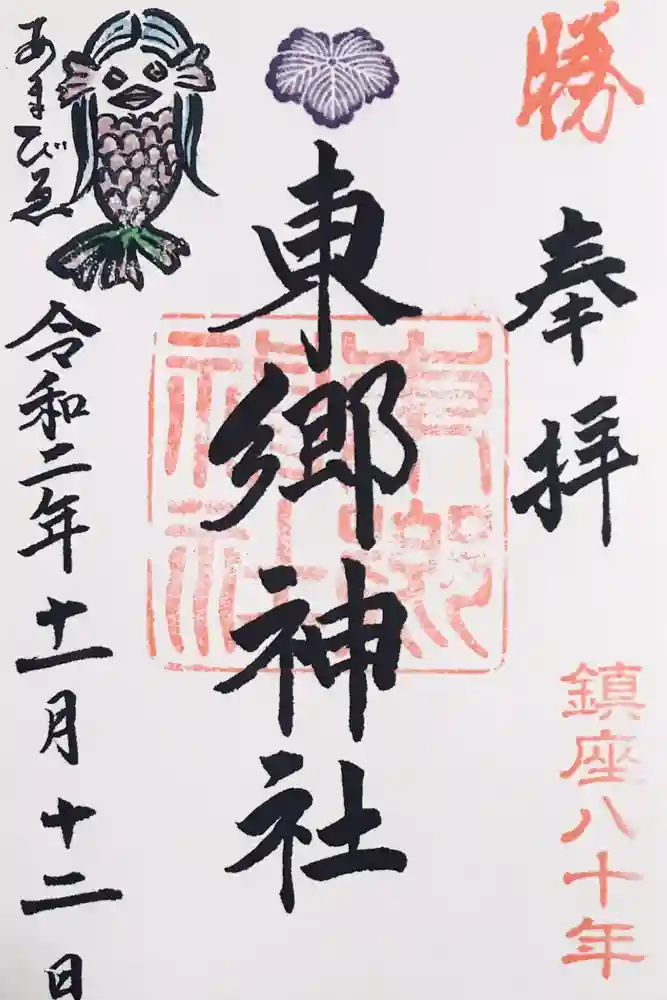 勝
奉拝
鎮座八十年
東郷神社
東郷神社
あまびゑ
令和二年十一月十二日